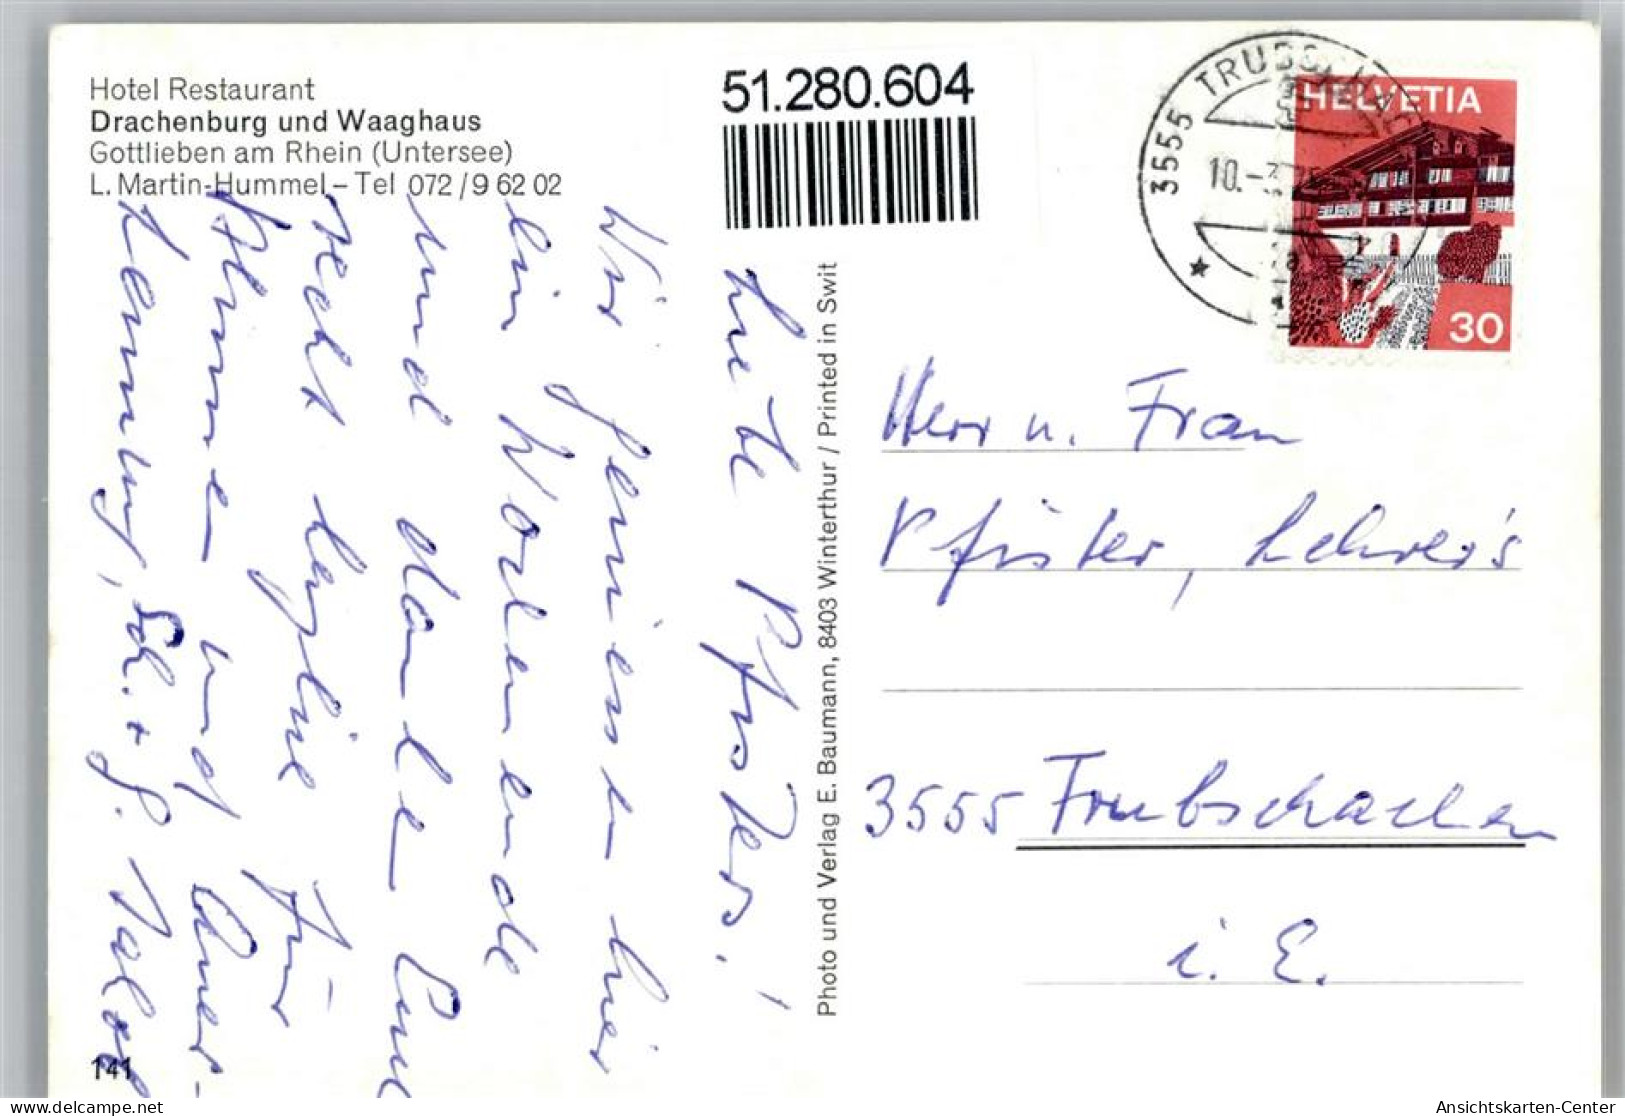 Hotel Restaurant
Drachenburg und Waaghaus
Gottlieben am Rhein (Untersee)
L. Martin-Hummel – Tel 072/9 62 02
51.280.604
3555 TRUBSCHACHEN
10.-3
HELVETIA
30
Liebe Pfisters!
Wir geniessen hier
ein Wochenende
und danken Euch
recht herzlich für
Blumen und
Photo und Verlag E. Baumann, 8403 Winterthur / Printed in Swit
Herr u. Frau
Pfister, Lehrer's
3555 Trubschachen
i. E.
141
Ansichtskarten-Center
delcampe.net